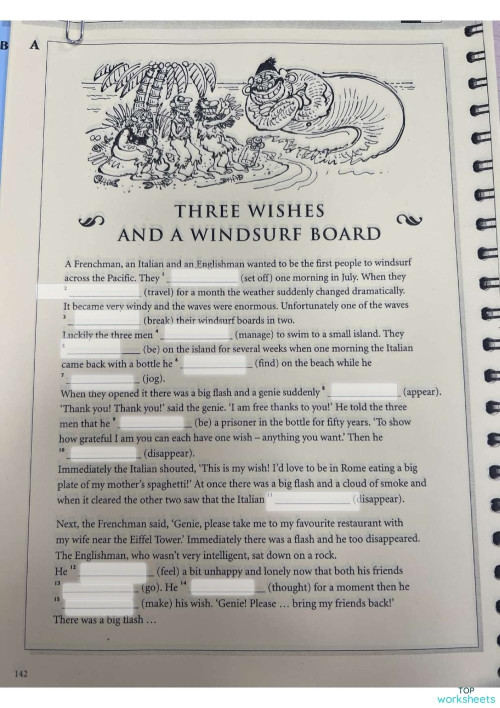 B A
THREE WISHES
AND A WINDSURF BOARD
A Frenchman, an Italian and an Englishman wanted to be the first people to windsurf
across the Pacific. They 1 (set off) one morning in July. When they
2 (travel) for a month the weather suddenly changed dramatically.
It became very windy and the waves were enormous. Unfortunately one of the waves
3 (break) their windsurf boards in two.
Luckily the three men 4 (manage) to swim to a small island. They
5 (be) on the island for several weeks when one morning the Italian
came back with a bottle he 6 (find) on the beach while he
7 (jog).
When they opened it there was a big flash and a genie suddenly 8 (appear).
'Thank you! Thank you!' said the genie. 'I am free thanks to you!' He told the three
men that he 9 (be) a prisoner in the bottle for fifty years. 'To show
how grateful I am you can each have one wish – anything you want.' Then he
10 (disappear).
Immediately the Italian shouted, 'This is my wish! I'd love to be in Rome eating a big
plate of my mother's spaghetti!' At once there was a big flash and a cloud of smoke and
when it cleared the other two saw that the Italian 11 (disappear).
Next, the Frenchman said, 'Genie, please take me to my favourite restaurant with
my wife near the Eiffel Tower.' Immediately there was a flash and he too disappeared.
The Englishman, who wasn't very intelligent, sat down on a rock.
He 12 (feel) a bit unhappy and lonely now that both his friends
13 (go). He 14 (thought) for a moment then he
15 (make) his wish. 'Genie! Please … bring my friends back!'
There was a big flash …
142
TOP
worksheets